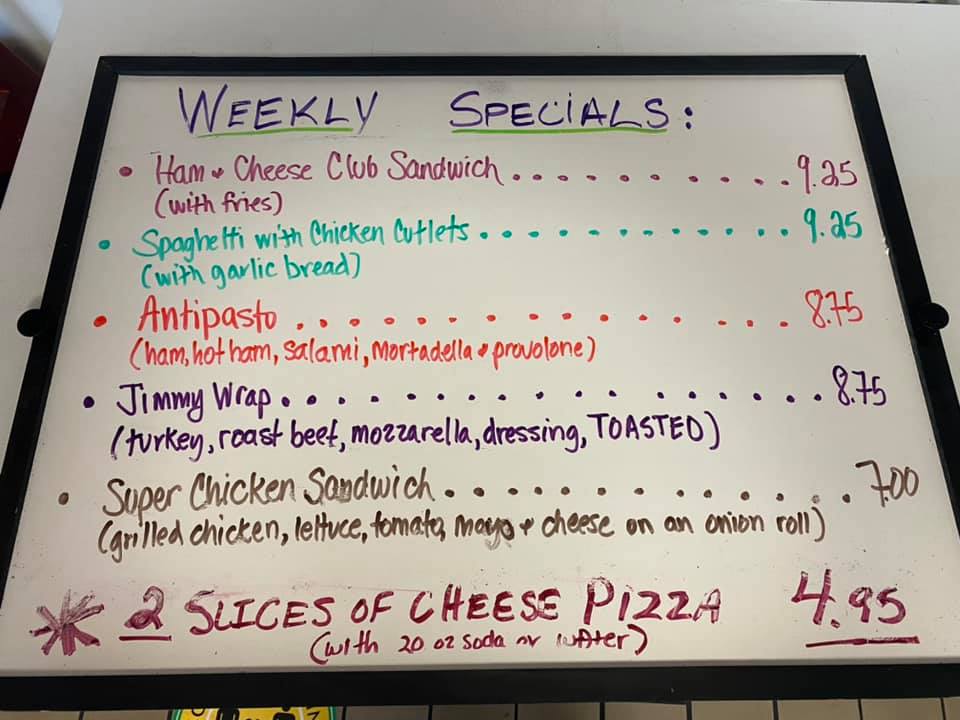 WEEKLY SPECIALS:
• Ham & Cheese Club Sandwich . . . . . . . . . . . 9.25
(with fries)
• Spaghetti with Chicken Cutlets . . . . . . . . . . . . 9.25
(with garlic bread)
• Antipasto . . . . . . . . . . . . . . . 8.75
(ham, hot ham, salami, Mortadella & provolone)
• Jimmy Wrap . . . . . . . . . . . . . . . . 8.75
(turkey, roast beef, mozzarella, dressing, TOASTED)
• Super Chicken Sandwich . . . . . . . . . . . . . 7.00
(grilled chicken, lettuce, tomato, mayo & cheese on an onion roll)
* 2 SLICES OF CHEESE PIZZA 4.95
(with 20 oz soda or water)